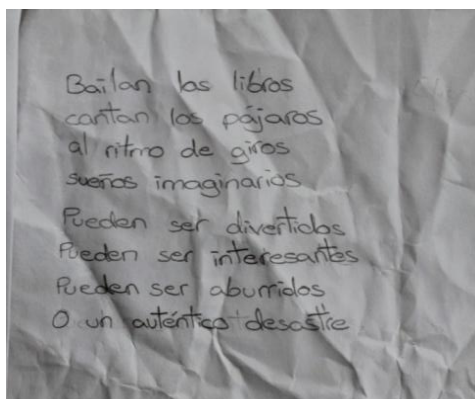 Bailan los libros
cantan los pájaros
al ritmo de giros
sueños imaginarios
Pueden ser divertidos
Pueden ser interesantes
Pueden ser aburridos
O un auténtico desastre